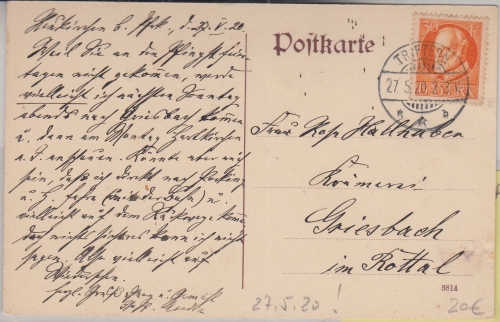 Neukirchen b. Pfk., d. 27. V. 20.
Weil Sie an den Pfingstfeier-
tagen nicht gekommen, werde
vielleicht ich nächsten Sonntag
abends nach Griesbach kommen
u. dann am Montag
anschauen. Könnte aber auch
sein, dass ich direkt nach Pocking
u. z. fahre u.
vielleicht auf dem Rückwege komme
doch nichts sicheres kann ich nicht
sagen. Also vielleicht auf
Wiedersehen.
herzl. Gruß
Postkarte
27.5.20
Frau Rosa Hallhuber
Krämerei
Griesbach
im Rottal
3814
27.5.20 !
20€